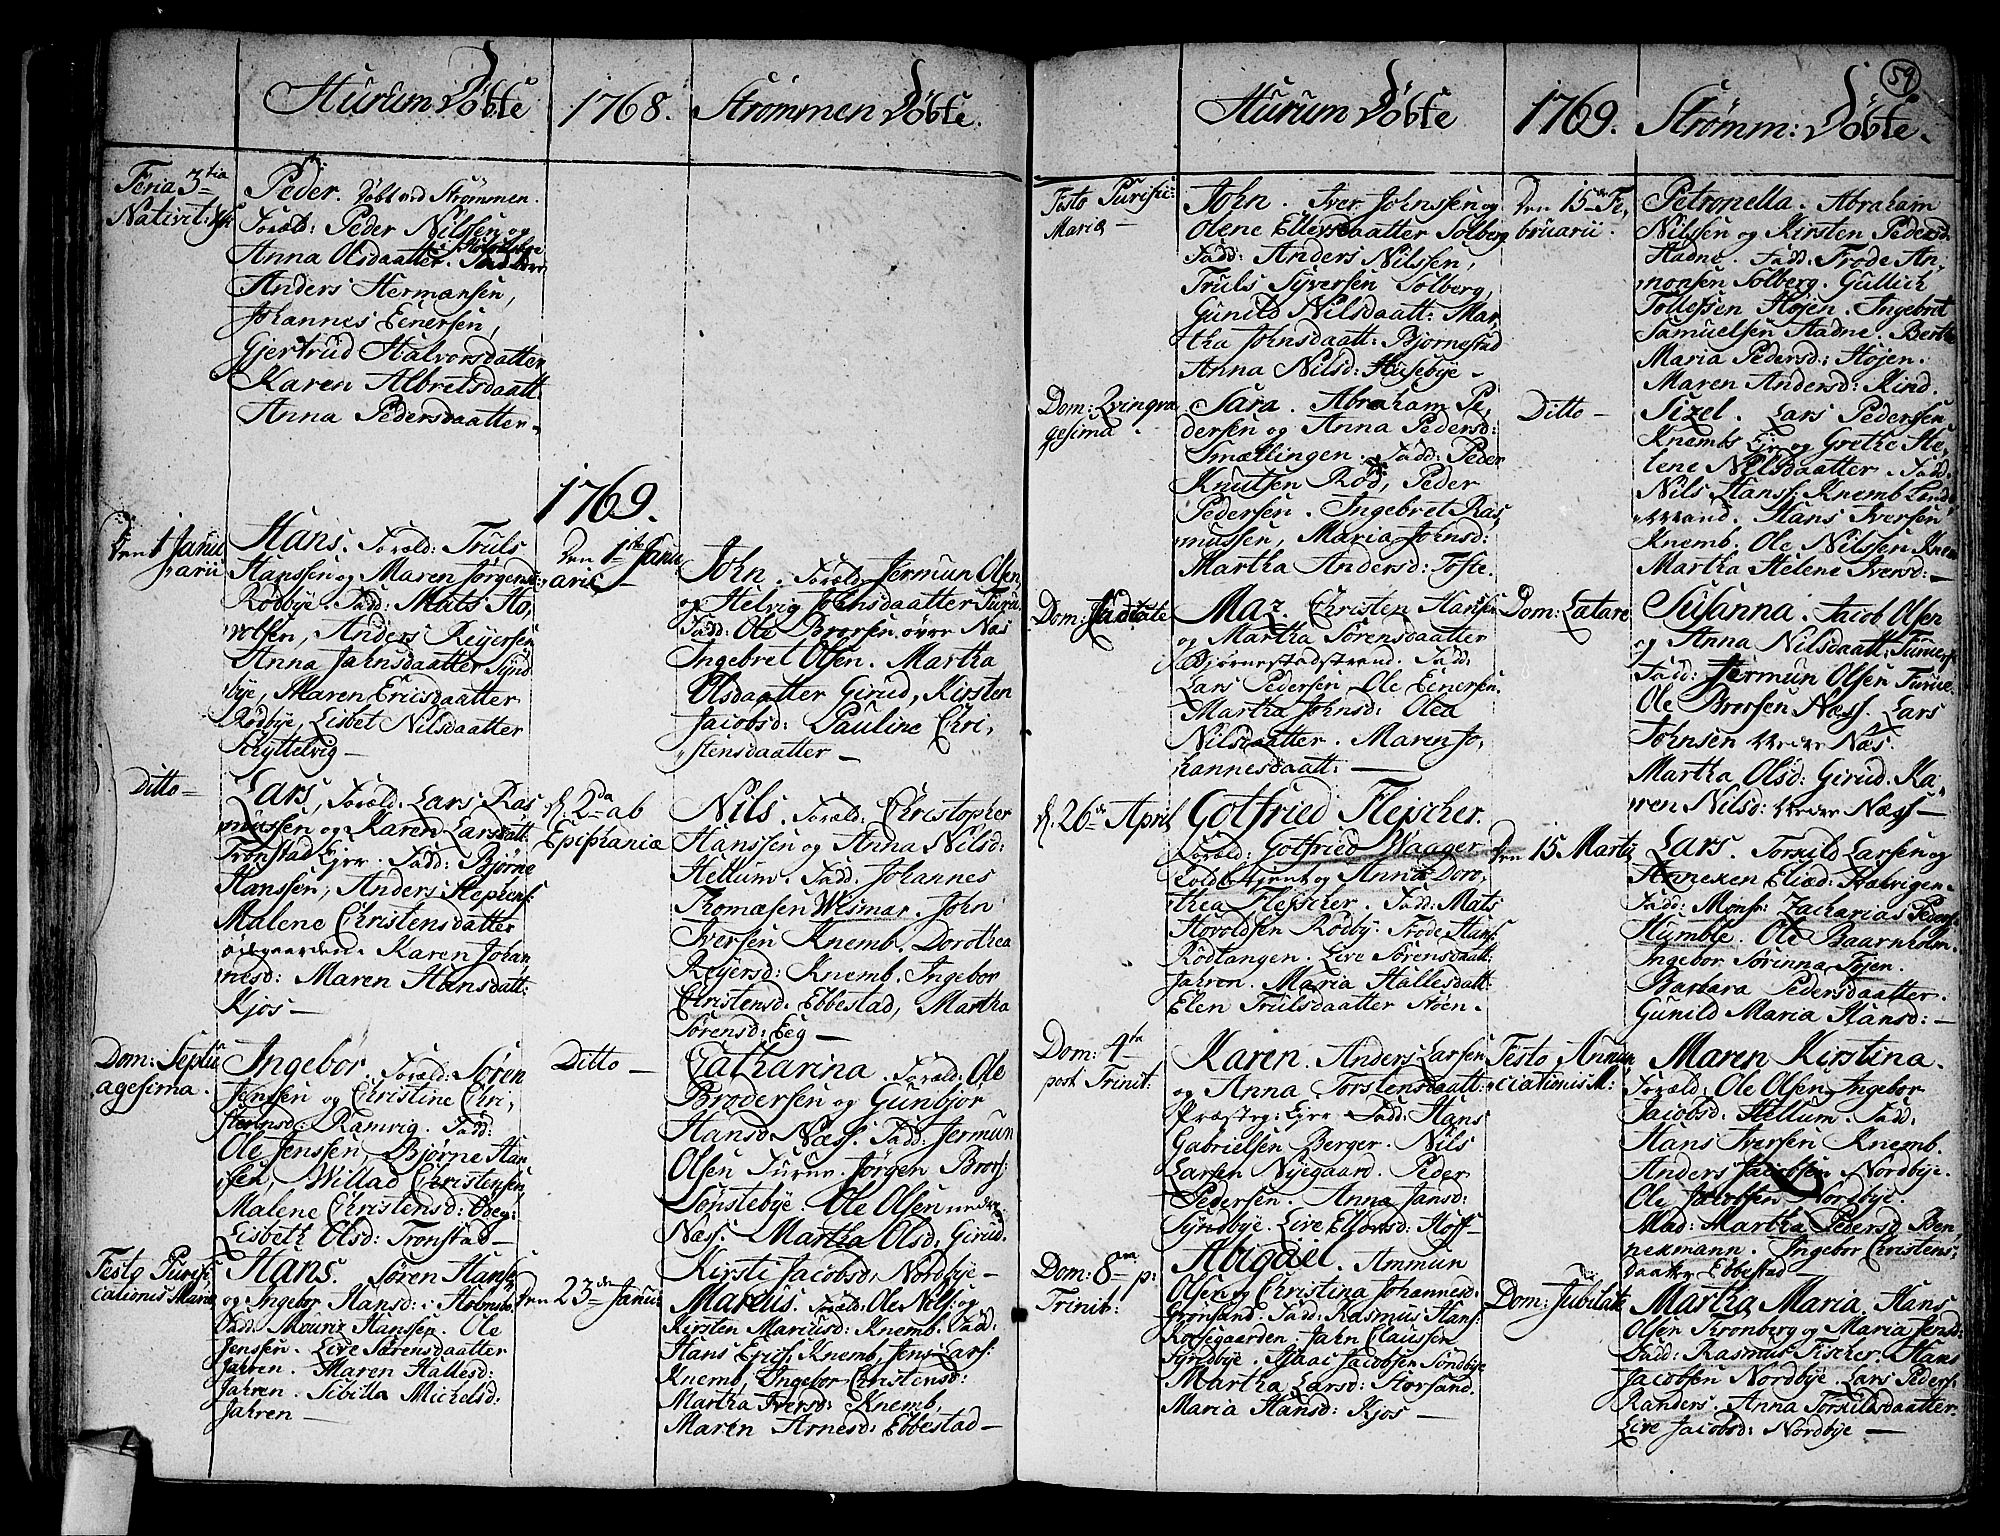 Hurum Döbte
1768.
Strömmen Döbte.
Feria 3tia
Nativit:
Peder. Döbt ved Strömmen.
Foræld: Peder Nilssen og
Anna Olsdaatter.
Anders Hermansen,
Johannes Einersen,
Gjertrud Halvorsdatter
Karen Albretsdaatt.
Anna Pedersdaatter.
1769.
Den 1 Janu
arii
Hans. Foræld: Truls
Hanssen og Maren Jørgensd:
Rödbye. Fadd: Mats Ho,
volsen, Anders Reyersen
Anna Jahnsdaatter Synd
bye, Maren Ericsdaatter
Rödbye, Lisbet Nilsdaatter
Schyttelvig —
Ditto —
Lars, Foræld: Lars Ras
mussen og Karen Larsdatt:
Tronstad Ejer. Fadd: Bjørne
Hanssen, Anders Stephens:
Malene Christensdatter
Karen Johan
nesd: Maren Hansdatt:
Kjos —
Dom: Septu
agesima.
Ingebor. Foræld: Søren
Jenssen og Christine Chri,
stensd: Ramvig. Fadd:
Ole Jenssen, Bjørne Han
ssen, Willad Christensen
Malene Christensd: Odeg:
Lisbeth Olsd: Tronstad —
Festo Purifi
cationis Mariæ
Hans. Søren Hans:
og Ingebor Hansd: i Holmsbo
Fadd: Mouriz Hanssen. Ole
Jensen. Live Sørensdaatter
Jahren. Maren Hallesd:
Jahren. Sibilla Michelsd:
Jahren —
Den 1ste Janu
arii —
John. Foræld: Jermun Olsen
og Helvig Johnsdaatter Furu
Fadd: Ole Brorsen øvre Næs
Ingebret Olsen. Martha
Olsdaatter Girud, Kirsten
Jacobsd: Pauline Chri,
stensdaatter —
d. 2da ab
Epiphaniæ
Nils. Foræld: Christopher
Hanssen og Anna Nilsd:
Hellum. Fadd: Johannes
Thomæsen Wismar. John
Iversen Knemb. Dorothea
Reyersd: Knemb. Ingebor
Christensd. Ebbestad, Martha
Sørensd: Eeg —
Ditto —
Catharina. Foræld: Ole
Brodersen og Gunbjor
Hansd Næss. Fadd: Jermun
Olsen Furue. Jørgen Brors:
Sønstebye. Ole Olsen nedre
Næss. Martha Olsd: Girud.
Kirsti Jacobsd: Nordbye —
Den 23de Januar
Marcus. Foræld: Ole Nils: og
Kirsten Mariusd: Knemb. Fadd:
Hans Erics: Knemb, Jens Lars:
Knemb, Ingebor Christensd:
Martha Iversd: Knemb,
Maren Arnesd: Ebbestad —
59
Hurum Döbte
1769.
Strömm: Döbte.
Festo Purific:
Mariæ —
John. Iver Johnssen og
Olene Ellersdaatter Solberg
Fadd: Anders Nilssen,
Truls Syversen Solberg,
Gunild Nilsdaatt: Mar,
tha Johnsdaatt: Bjørnestad
Anna Nilsd: Husebye —
Dom: Qvinqva
gesima.
Sara. Abraham Pe,
dersen og Anna Pedersd:
Smætlingen. Fadd: Peder
Knutsen Röd, Peder
Pedersen. Ingebret Ras,
mussen, Maria Johnsd:
Martha Andersd: Tofte.
Dom:
Maz. Christen Hansen
og Martha Sørensdaatter
Bjørnestadstrand. Fadd:
Lars Pedersen Ole Einersen.
Martha Johnsd: Olea
Nilsdaatter. Maren Jo,
hannesdaatt: —
d. 26de April
Gotfried Fleischer.
Foræld: Gotfried Waager
og Anna Doro,
thea Fleischer. Fadd: Mats
Hovoldsen Rödby. Frode Hans:
Rödtangen. Live Sørensdaatt:
Jahren. Maria Hallesdatt:
Elen Trulsdaatter Nöen.
Dom: 4ta
post Trinit:
Karen. Anders Larsen
og Anna Torstensdaatt:
Præsteg: Ejer Fadd: Hans
Gabrielsen Berger. Nils
Larsen Nyegaard. Peder
Pedersen. Anna Jansd:
Syndbye. Live Ellevsd: Hoff —
Dom: 8va p:
Trinit:
Abigael. Ammun
Olsen og Christina Johannesd:
Grönsand. Fadd: Rasmus Hans:
Korsegaarden. Jahn Claussen
Syndbye. Isaac Jacobsen Söndbye
Martha Larsd: Storsand.
Maria Hansd: Kjos —
Den 15de Fe,
bruarii.
Petronella. Abraham
Nilssen og Kirsten Pedersd:
Hadne. Fadd: Frode Am,
monsen Solberg. Gullich
Tollefsen Høyen. Ingebret
Samuelsen Aadne. Berthe
Maria Pedersd: Høyen.
Maren Andersd: Kind.
Ditto —
Sizel. Lars Pedersen
Knembs Ejr og Grethe He,
lene Nilsdaatter. Fadd:
Nils Hans: Knemb Lands
mand. Hans Iversen
Knemb. Ole Nilssen Knem
Martha Helene Iversd: —
Dom: Lætare
Susanna. Jacob Olsen
og Anna Nilsdaatt: Furue
Fadd: Jermun Olsen Furue
Ole Brorsen Næss. Lars
Johnsen nedre Næs.
Martha Olsd: Girud. Ka,
ren Nilsd: nedre Næss —
Den 15 Marty
Lars. Torkild Larsen og
Annexen Eliæd: Halvigen.
Fadd: Monsr: Zacharias Peders:
Humble. Ole Baarnholm.
Ingebor Sørinna Tojen.
Barbara Pedersdaatter.
Gunild Maria Hansd: —
Festo Annun
ciationis M:
Maren Kirstina.
Foræld: Ole Olsen, Ingebor
Jacobsd: Hellum. Fadd:
Hans Iversen Knemb.
Anders Jacobsen Nordbye.
Ole Jacobsen Nordbye
Mad: Martha Pedersd Ben,
nekmann. Ingebor Christens,
daatter Ebbestad —
Dom: Jubilate
Martha Maria. Hans
Olsen Kronberg og Maria Jensd:
Fadd: Rasmus Fischer. Hans
Jacobsen Nordbye. Lars Peders:
Randers. Anna Torkildsdaatter.
Live Jacobsd: Nordbye —